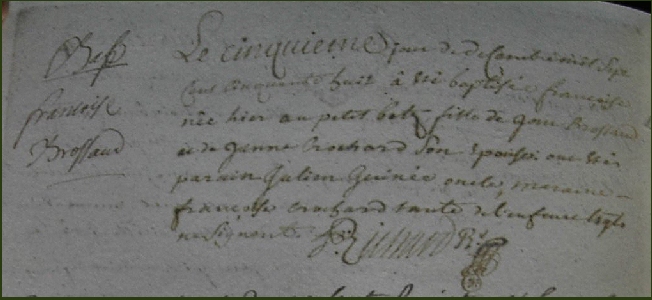 Bap
françoise
Brossaud
Le cinquieme jour de decembre mil sept
cent cinquante huit à été baptisée françoise
née hier au petit fille de Brossaud
et de Janne Rochard son epouse ont été
parain Julien Guinée oncle, maraine
françoise crochard tante de l'enfant
ne signent. Richard